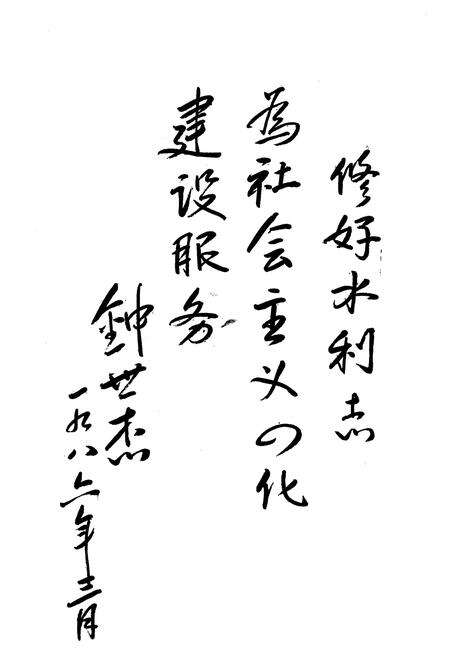 修好水利志
為社会主义四化
建设服务
鈡世杰
一九八六年十二月